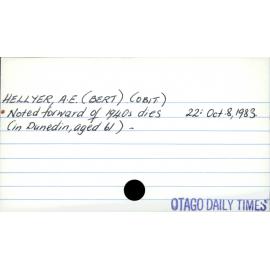 HELLYER, A.E. (BERT) (OBIT)
• Noted forward of 1940s dies 22: Oct. 8, 1983
(in Dunedin, aged 61) -
OTAGO DAILY TIMES